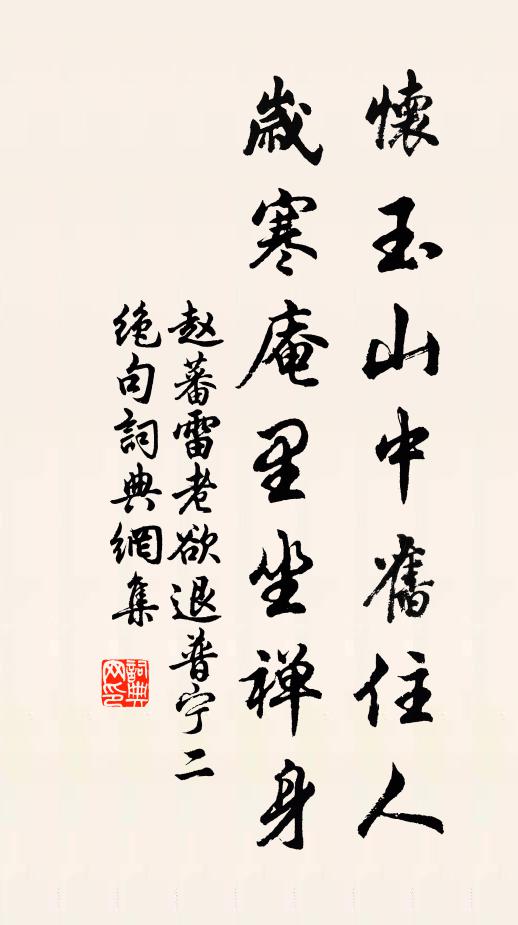 懷玉山中舊住人
歲寒庵里坐禅身
赵蕃雷老欲退普宁二
绝句詞典網集
詞典网印